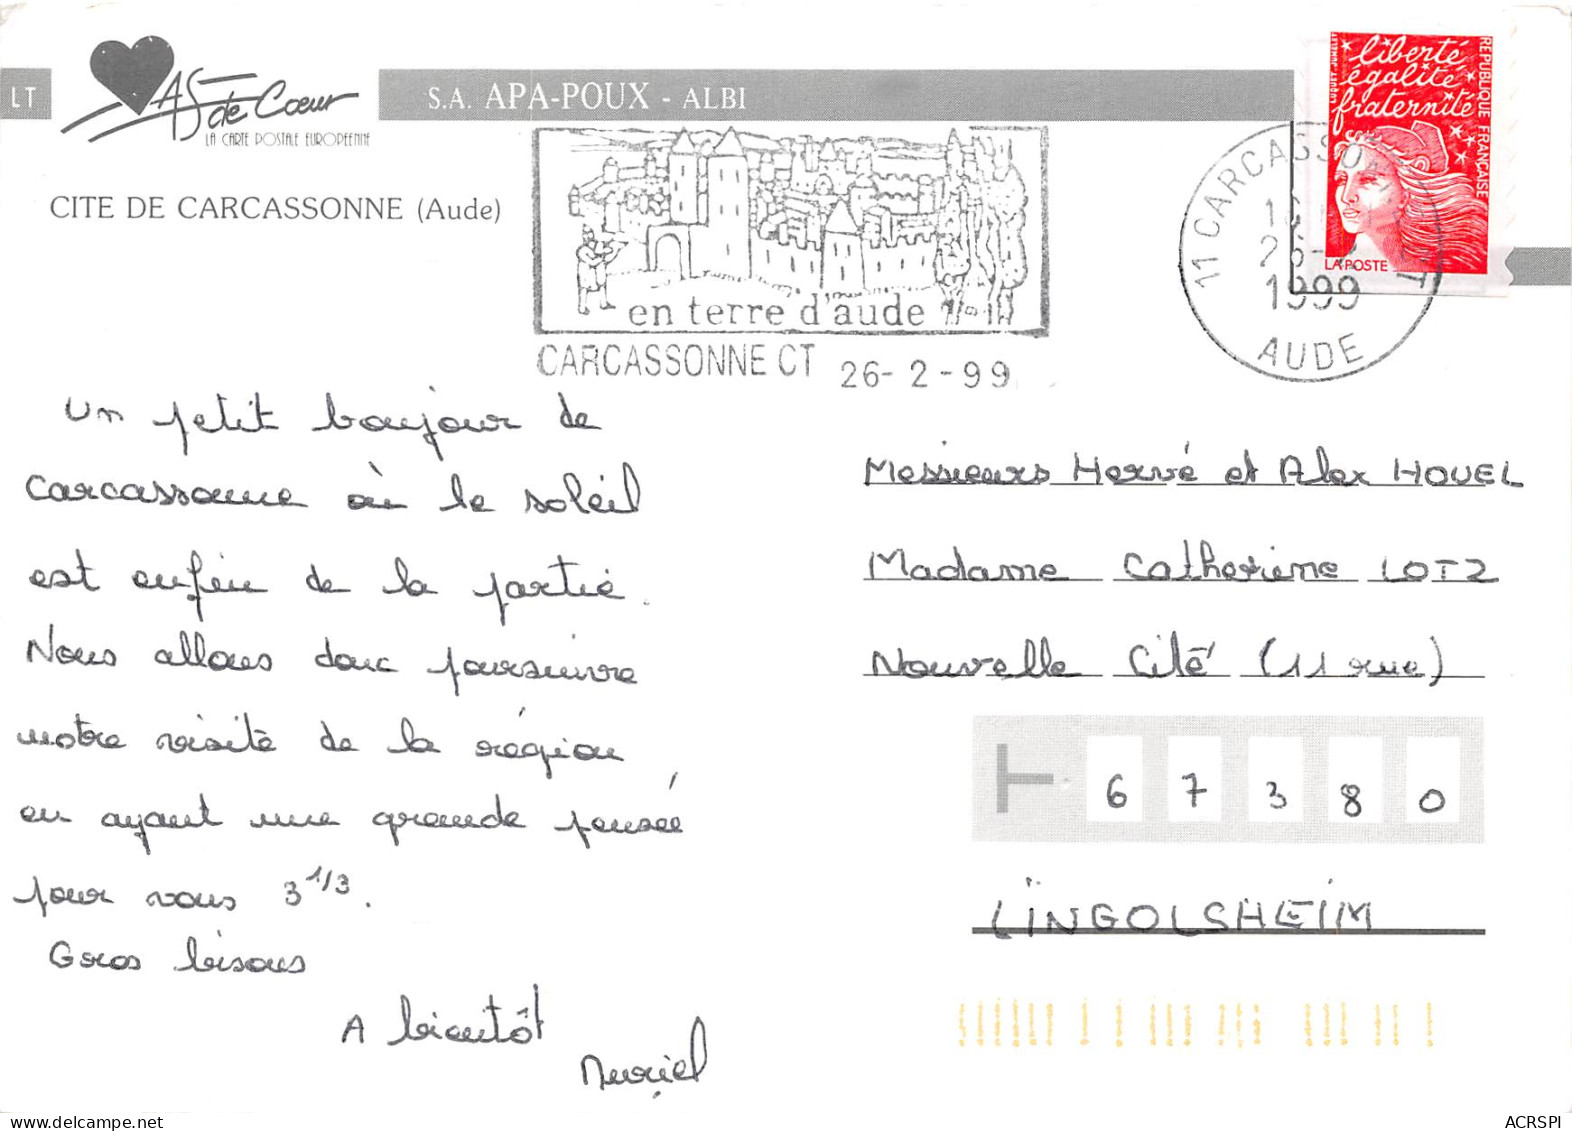 LT
As de Cœur
LA CARTE POSTALE EUROPEENNE
S.A. APA-POUX - ALBI
CITE DE CARCASSONNE (Aude)
en terre d'aude
CARCASSONNE CT 26-2-99
11 CARCASSONNE
1999
AUDE
liberté
égalité
fraternité
REPUBLIQUE FRANÇAISE
LA POSTE
Un petit bonjour de
Carcassonne où le soleil
est enfin de la partie.
Nous allons donc poursuivre
notre visite de la région
en ayant une grande pensée
pour vous 3 1/3.
Gros bisous
A bientôt
Muriel
Messieurs Hervé et Alex HOUEL
Madame Catherine LOTZ
Nouvelle Cité (11 rue)
67380
LINGOLSHEIM
ACRSPI